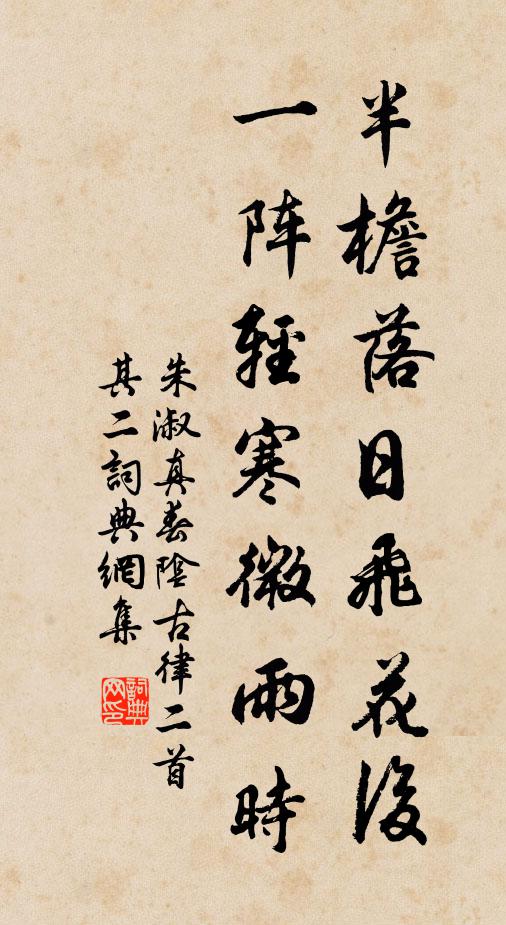 半檐落日飛花後
一阵輕寒微雨時
朱淑真春陰古律二首
其二詞典網集
詞典
网印